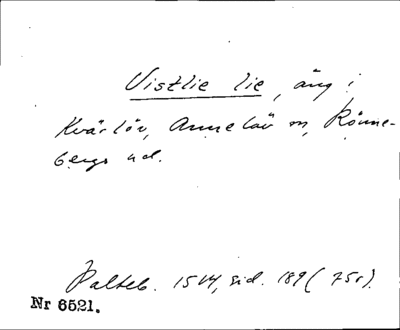 Vistlie lie, äng i
Kvärlöv, Annelöv sn, Rönne-
bergs hd.
Palteb. 1514, sid. 189 (75r).
Nr 6521.